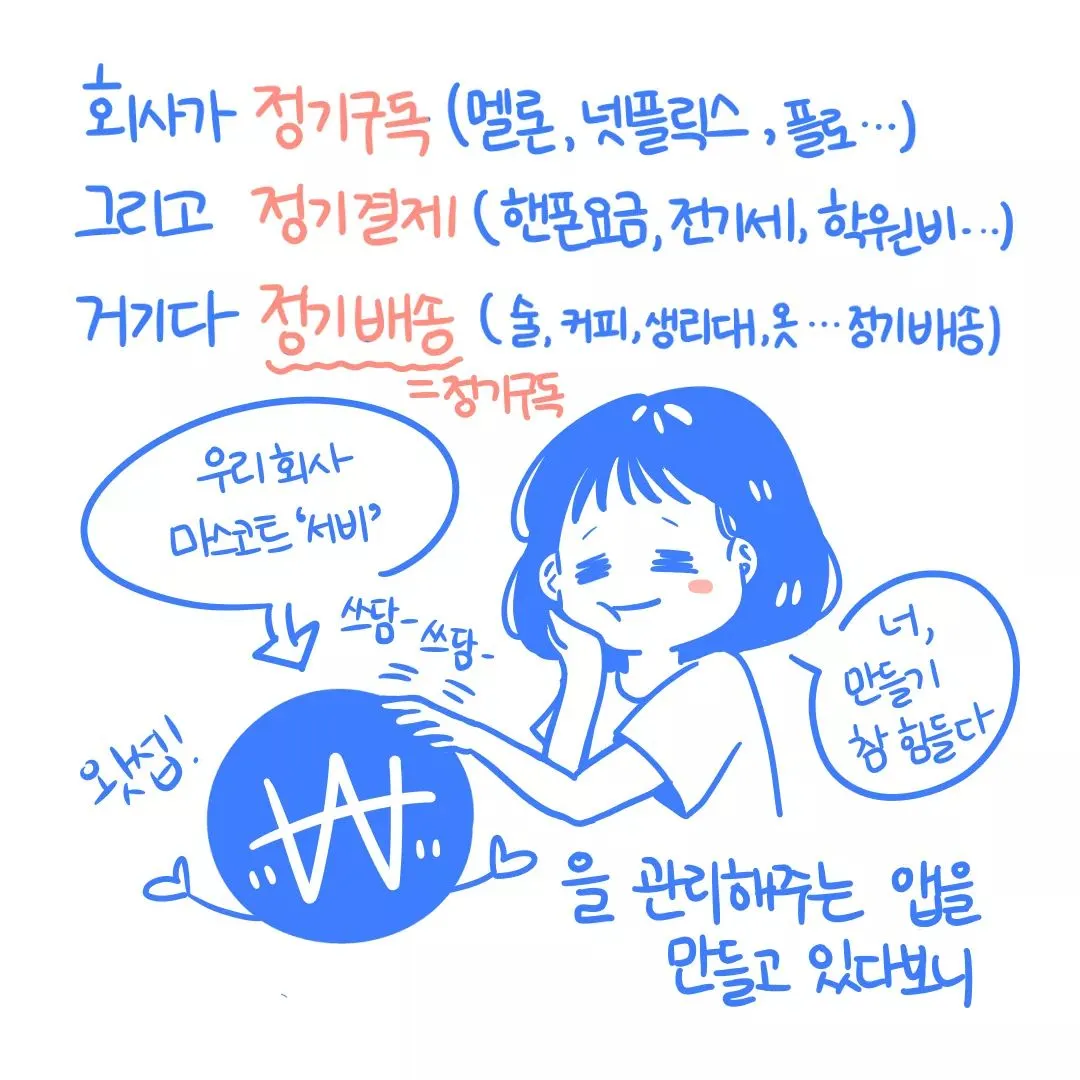 회사가 정기구독 (멜론, 넷플릭스, 플로…)
그리고 정기결제 (핸폰요금, 전기세, 학원비…)
거기다 정기배송 (술, 커피, 생리대, 옷… 정기배송)
=정기구독
우리 회사
마스코트 ‘서비’
쓰담-
쓰담-
왓썹!
₩
너,
만들기
참 힘들다
을 관리해주는 앱을
만들고 있다보니